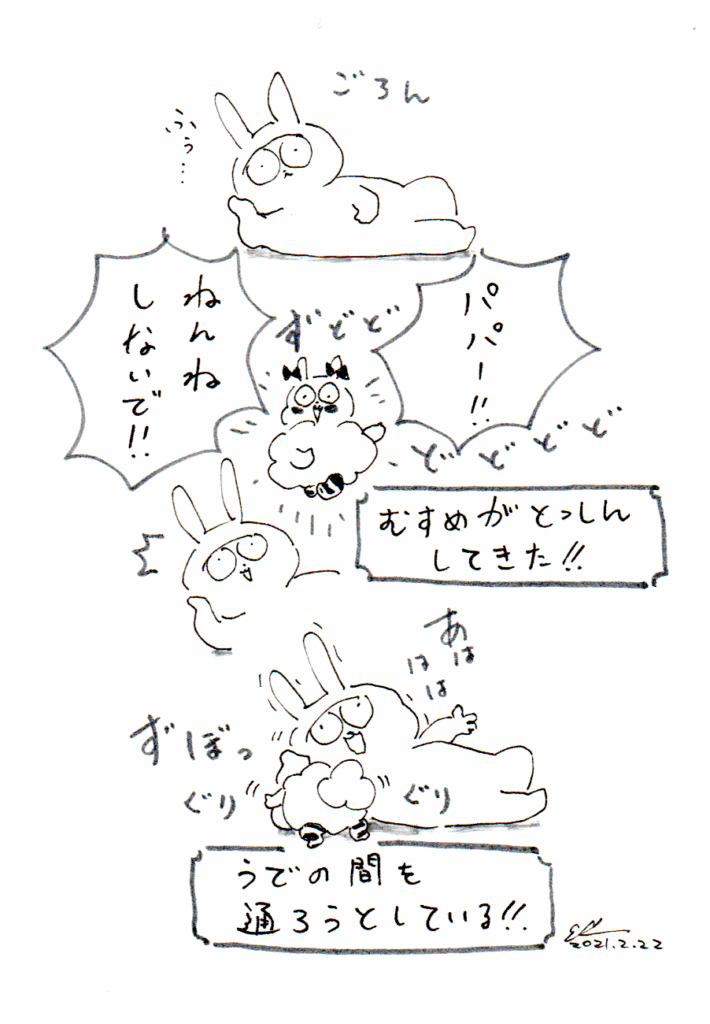 ごろん
ふぅ…
パパー!!
ねんね
しないで!!
ずどど
どどどど
むすめがとっしん
してきた!!
あはははは
ずぼっ
ぐり
ぐり
うでの間を
通ろうとしている!!
2021.2.22